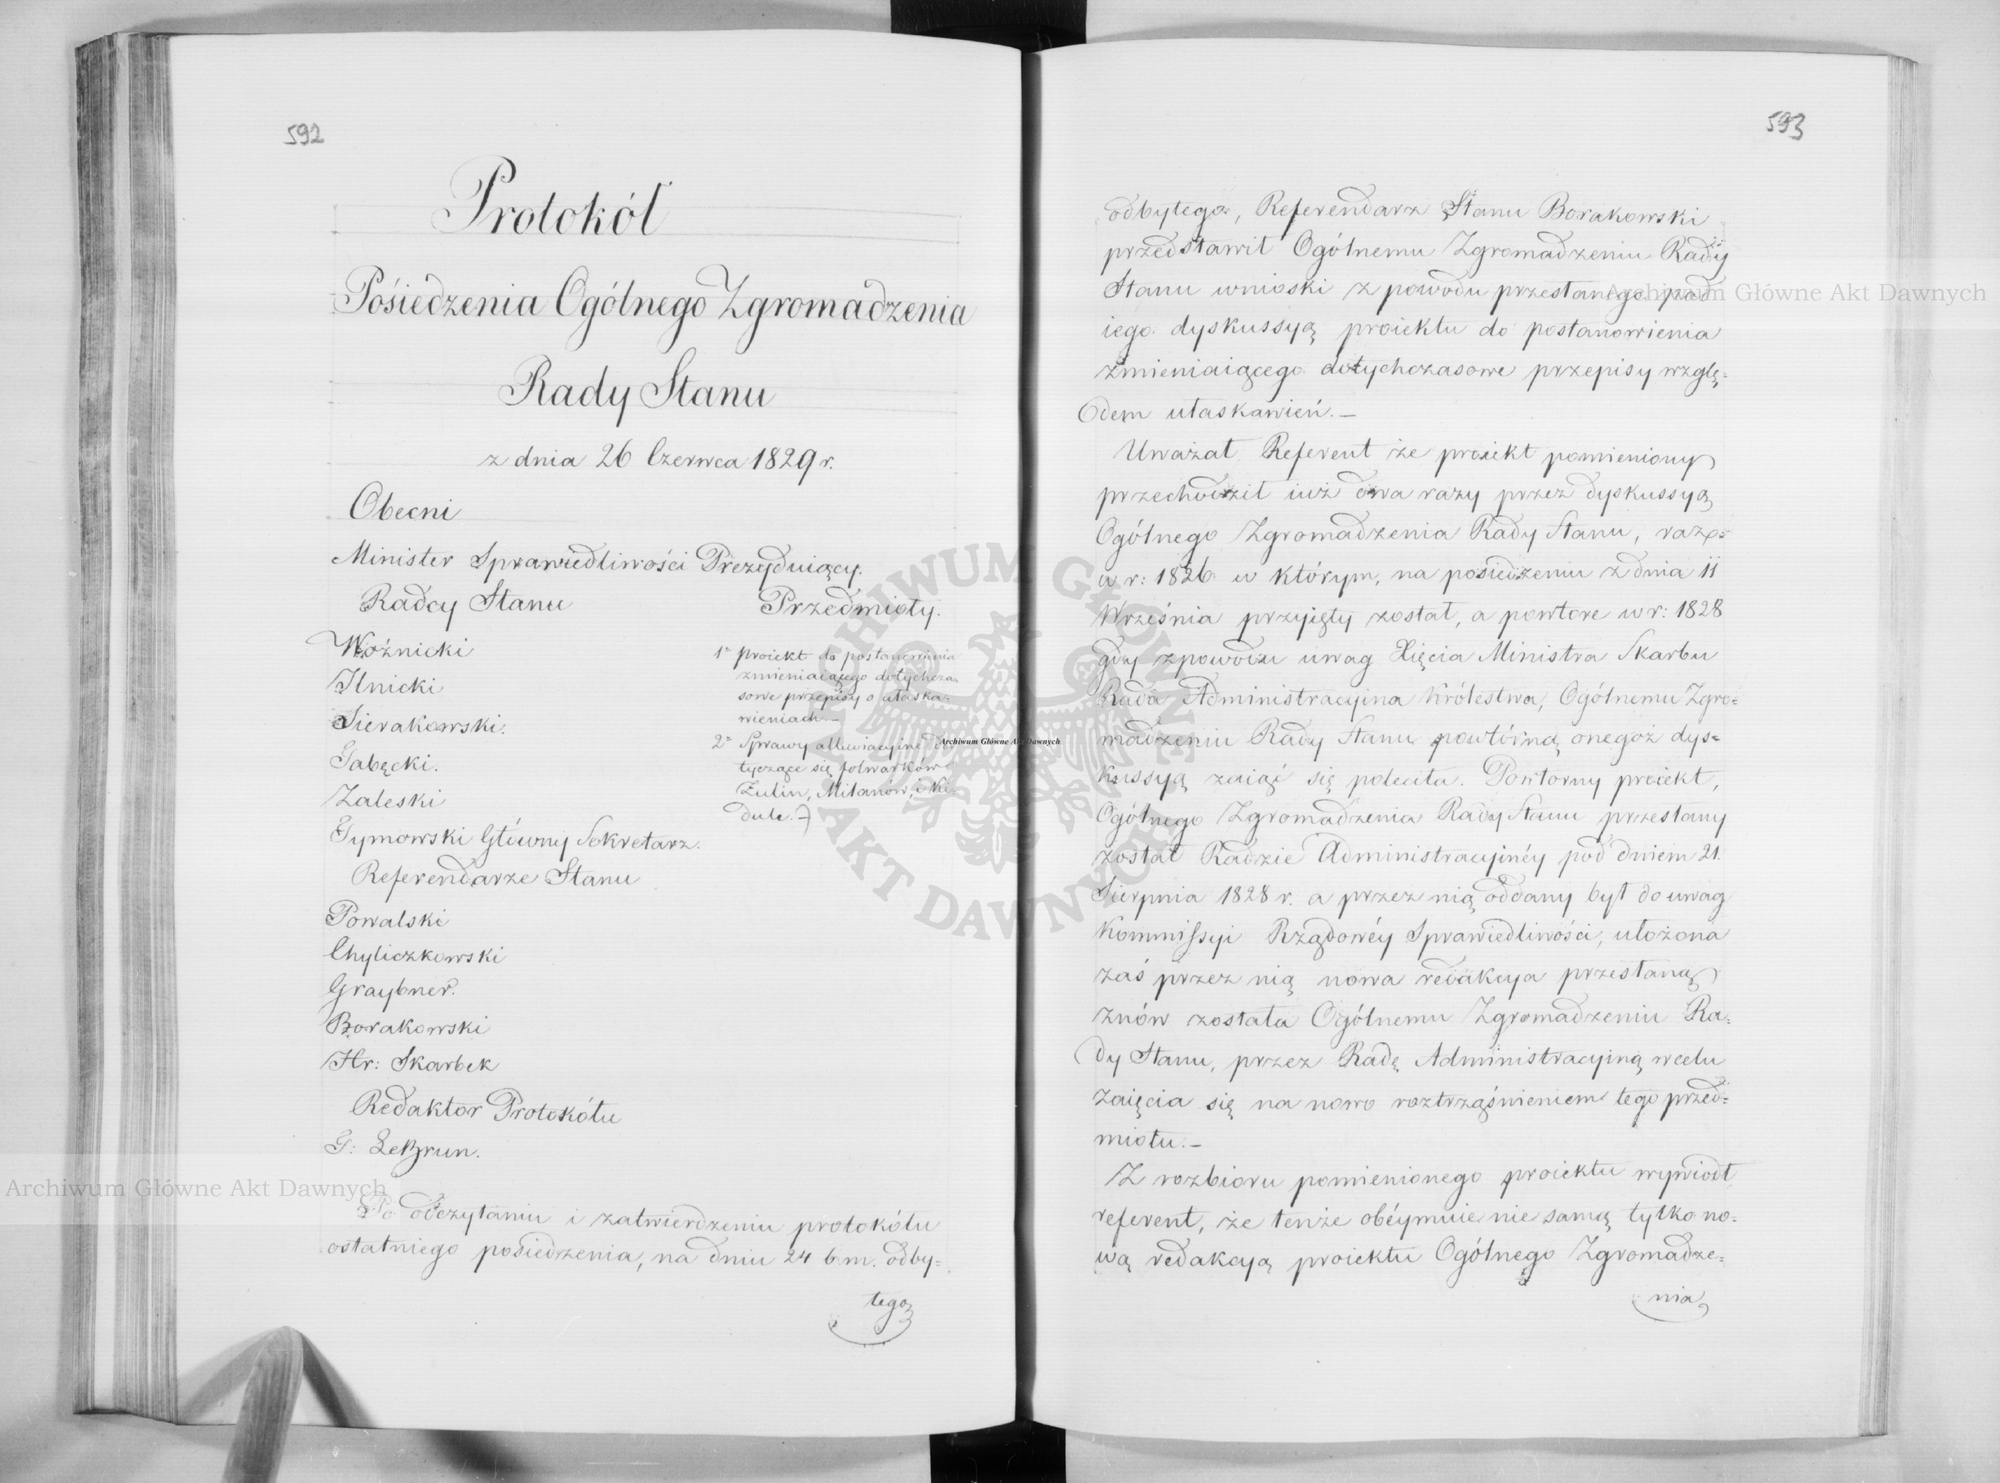 592
Protokół
Posiedzenia Ogólnego Zgromadzenia
Rady Stanu
z dnia 26 Czerwca 1829 r.
Obecni
Minister Sprawiedliwości Prezyduiący.
Radcy Stanu
Woźnicki
Ilnicki
Sierakowski.
Gabęcki.
Zaleski
Tymowski Główny Sekretarz.
Referendarze Stanu
Powalski
Chyliczkowski
Graybner.
Borakowski
Hr: Skarbek
Redaktor Protokółu
G: LeBrun.
Przedmioty.
1° Proiekt do postanowienia
zmieniaiącego dotychcza-
sowe przepisy o ułaska-
wieniach.—
2° Sprawy alluwiacyine do-
tyczące się folwarków
Żulin, Milanów, i Ki-
dule.
Po odczytaniu i zatwierdzeniu protokółu
ostatniego posiedzenia, na dniu 24 b.m. odby=
tego
593
odbytego, Referendarz Stanu Borakowski
przedstawił Ogólnemu Zgromadzeniu Rady
Stanu wnioski z powodu przesłanego pod
iego dyskussyą proiektu do postanowienia
zmieniaiącego dotychczasowe przepisy wzglę=
dem ułaskawień.—
Uważał Referent że proiekt pomieniony
przechodził iuż dwa razy przez dyskussyą
Ogólnego Zgromadzenia Rady Stanu, raz
w r: 1826 w którym, na posiedzeniu z dnia 11
Września przyięty został, a powtore w r: 1828
gdy z powodu uwag Xięcia Ministra Skarbu
Rada Administracyina Królestwa, Ogólnemu Zgro=
madzeniu Rady Stanu powtórną onegoż dys=
kussyą zaiąć się poleciła. Powtorny proiekt,
Ogólnego Zgromadzenia Rady Stanu przesłany
został Radzie Administracyinéy pod dniem 21.
Sierpnia 1828 r. a przez nią oddany był do uwag
Kommissyi Rządowéy Sprawiedliwości, ułożona
zaś przez nią nowa redakcya przesłaną
znów została Ogólnemu Zgromadzeniu Ra=
dy Stanu, przez Radę Administracyiną w celu
zaięcia się na nowo roztrząśnieniem tego przed=
miotu.—
Z rozbioru pomienionego proiektu wywiodł
referent, że tenże obéymuie nie samą tylko no=
wą redakcyą proiektu Ogólnego Zgromadze=
nia
Archiwum Główne Akt Dawnych
Archiwum Główne Akt Dawnych
Archiwum Główne Akt Dawnych
ARCHIWUM GŁÓWNE
AKT DAWNYCH